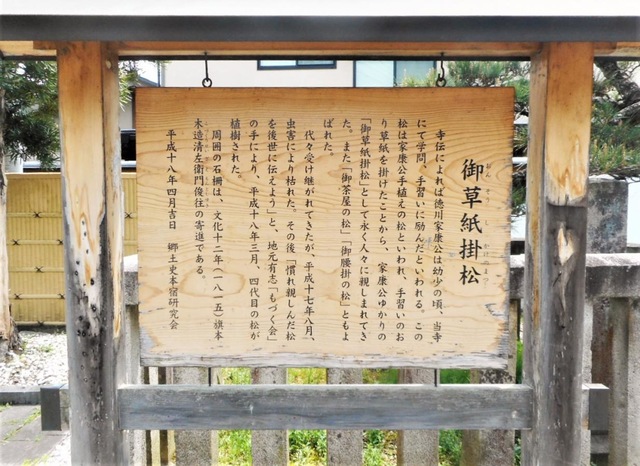 御草紙掛松
おんそうしかけまつ
寺伝によれば徳川家康公は幼少の頃、当寺
にて学問、手習いに励んだといわれる。この
松は家康公手植えの松といわれ、手習いのお
り草紙を掛けたことから、家康公ゆかりの
「御草紙掛松」として永く人々に親しまれてき
た。また「御茶屋の松」「御腰掛の松」ともよ
ばれた。
代々受け継がれてきたが、平成十七年八月、
虫害により枯れた。その後「慣れ親しんだ松
を後世に伝えよう」と、地元有志「もづく会」
の手により、平成十八年三月、四代目の松が
植樹された。
周囲の石柵は、文化十二年(一八一五)旗本
本造清左衛門俊往の寄進である。
平成十八年四月吉日 郷土史本宿研究会